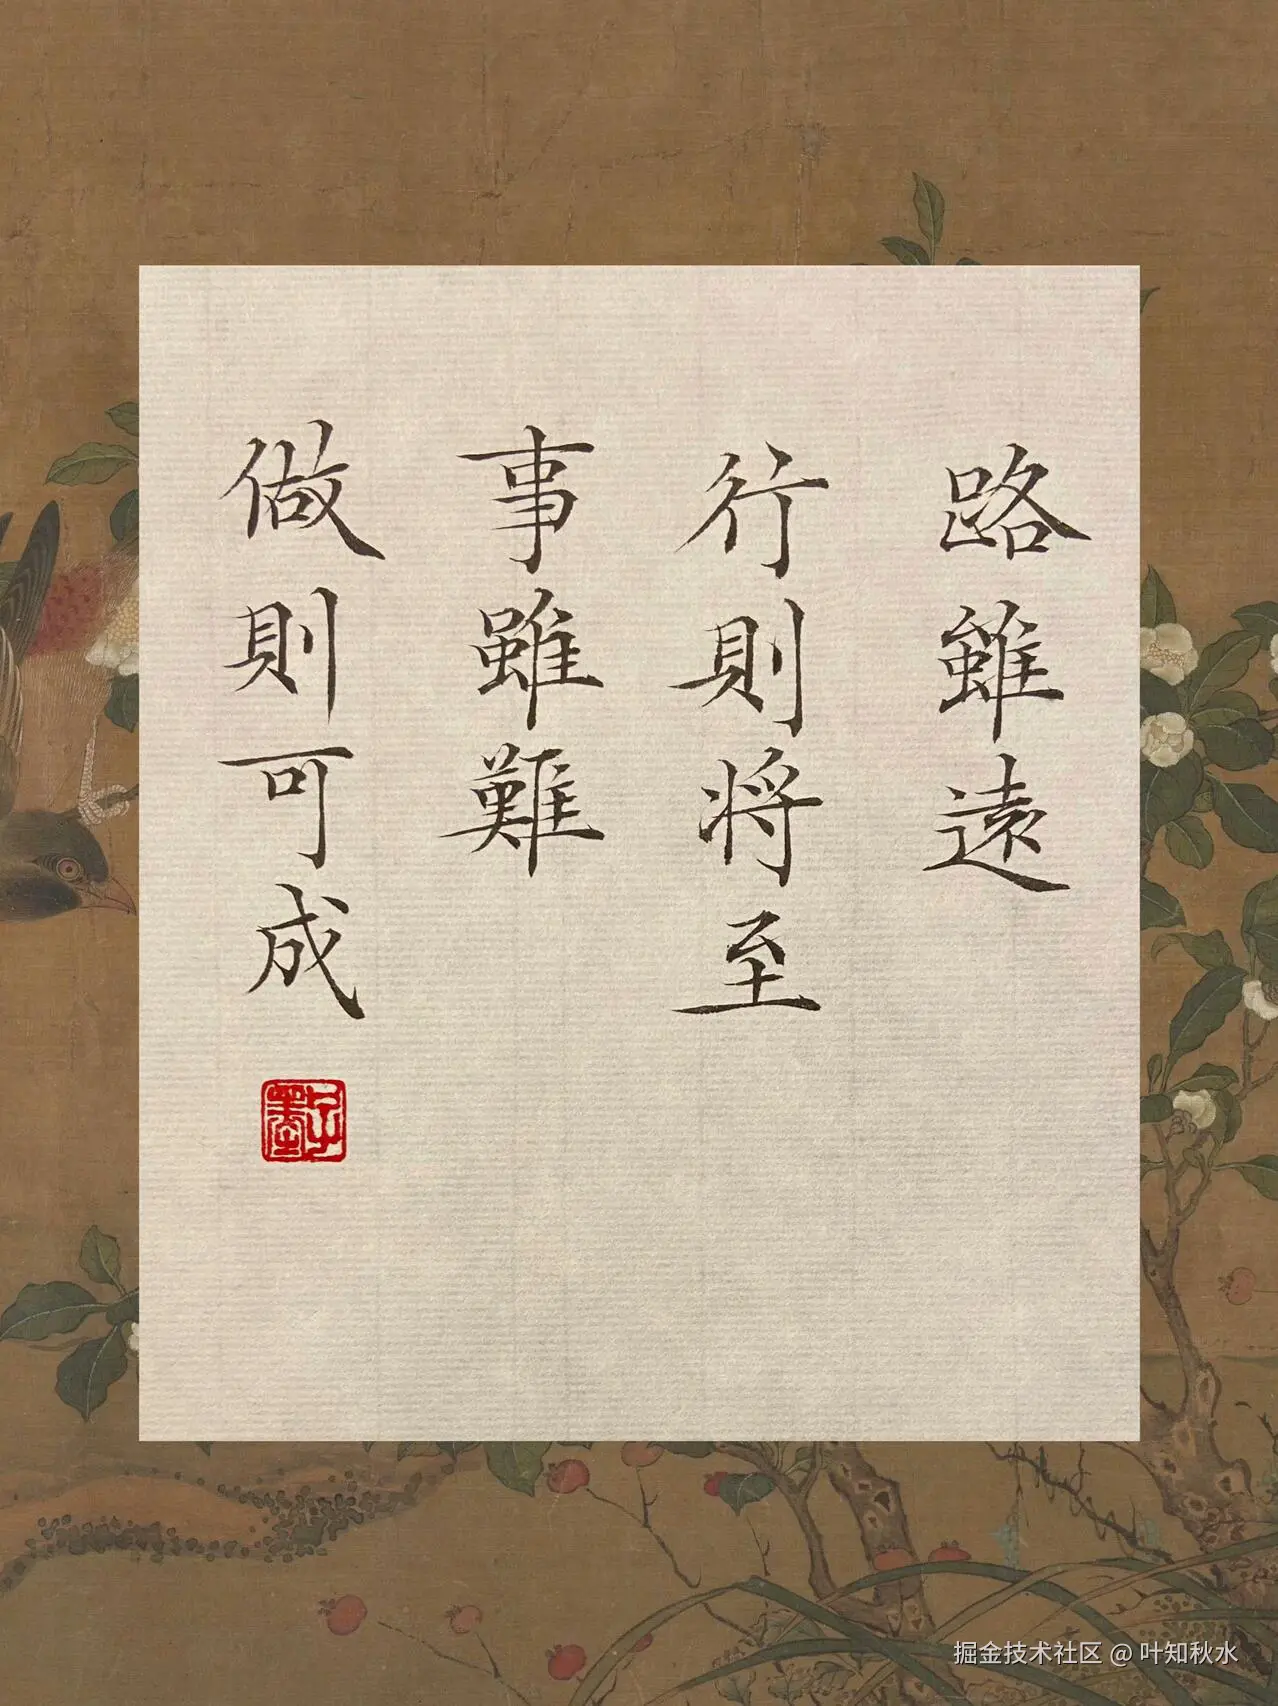 路雖遠
行則将至
事雖難
做則可成
子墨
掘金技术社区 @ 叶知秋水